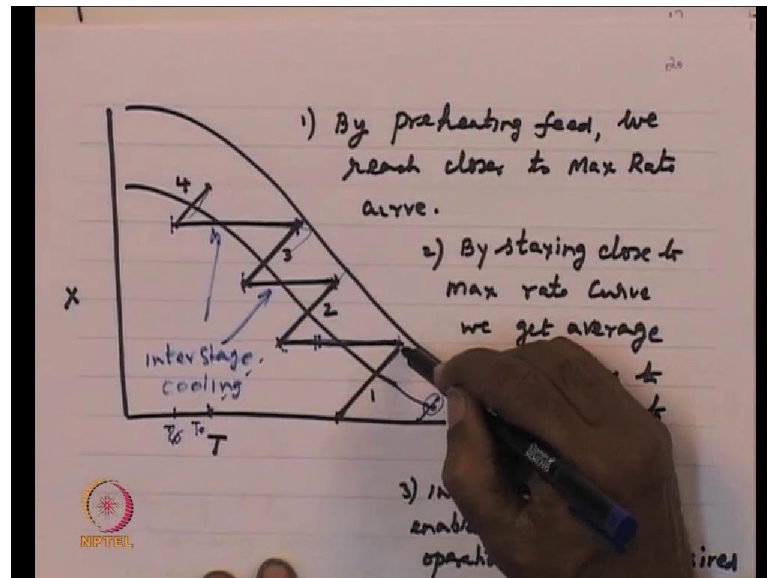 20
1) By preheating feed, we
reach closer to Max Rate
curve.
2) By staying close to
Max rate Curve
we get average
to
3) in
operati
sired
X
4
3
2
1
interstage
cooling
To
T
NPTEL